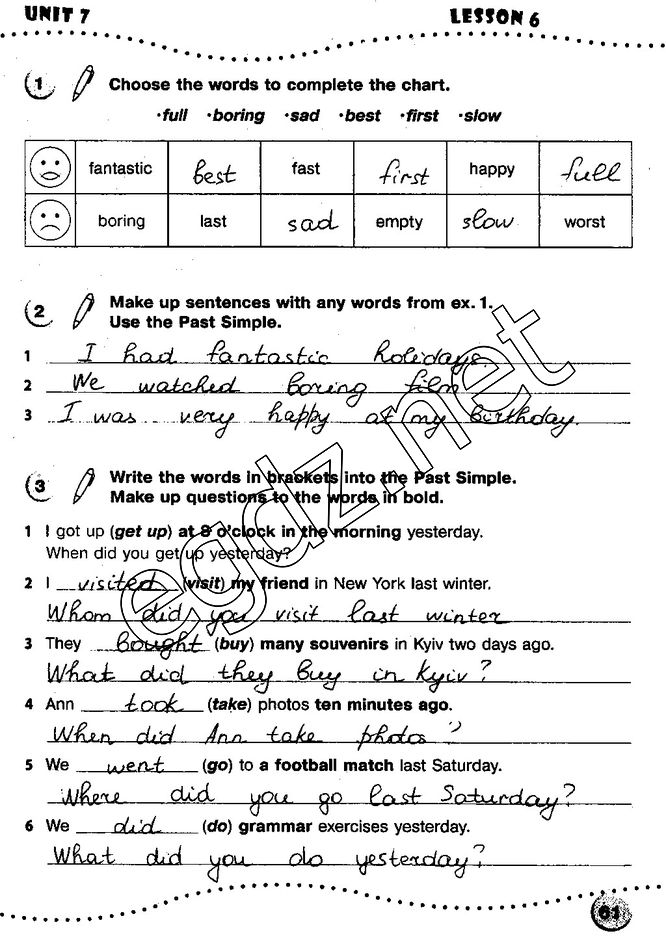 UNIT 7 LESSON 6
1 Choose the words to complete the chart.
•full •boring •sad •best •first •slow
fantastic best fast first happy full
boring last sad empty slow worst
2 Make up sentences with any words from ex. 1.
Use the Past Simple.
1 I had fantastic holidays.
2 We watched boring film
3 I was very happy at my birthday.
3 Write the words in brackets into the Past Simple.
Make up questions to the words in bold.
1 I got up (get up) at 8 o'clock in the morning yesterday.
When did you get up yesterday?
2 I visited (visit) my friend in New York last winter.
Whom did you visit last winter
3 They bought (buy) many souvenirs in Kyiv two days ago.
What did they buy in Kyiv?
4 Ann took (take) photos ten minutes ago.
When did Ann take photos?
5 We went (go) to a football match last Saturday.
Where did you go last Saturday?
6 We did (do) grammar exercises yesterday.
What did you do yesterday?
61
egdz.net